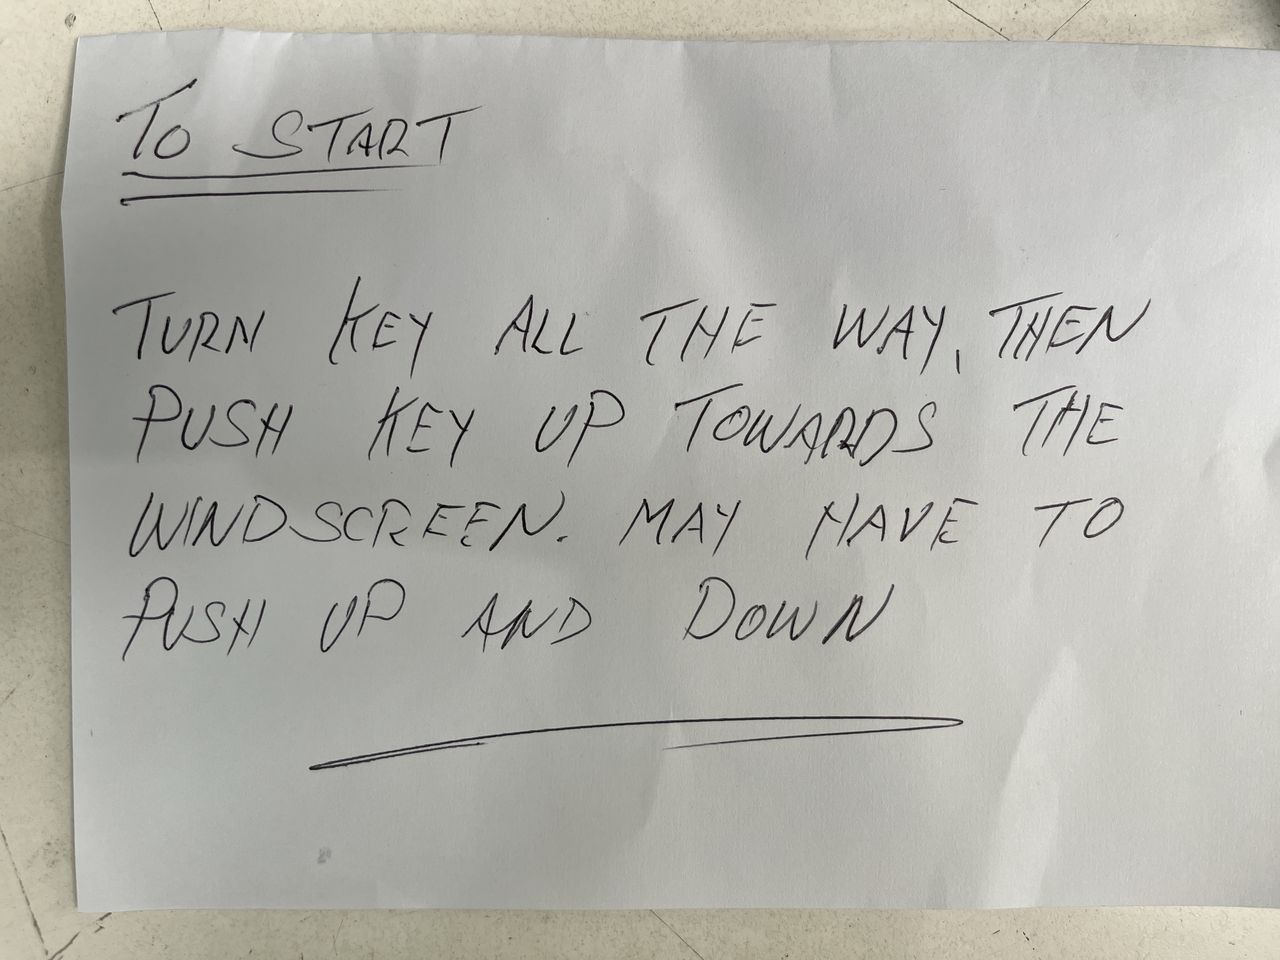 TO START
TURN KEY ALL THE WAY, THEN
PUSH KEY UP TOWARDS THE
WINDSCREEN. MAY HAVE TO
PUSH UP AND DOWN